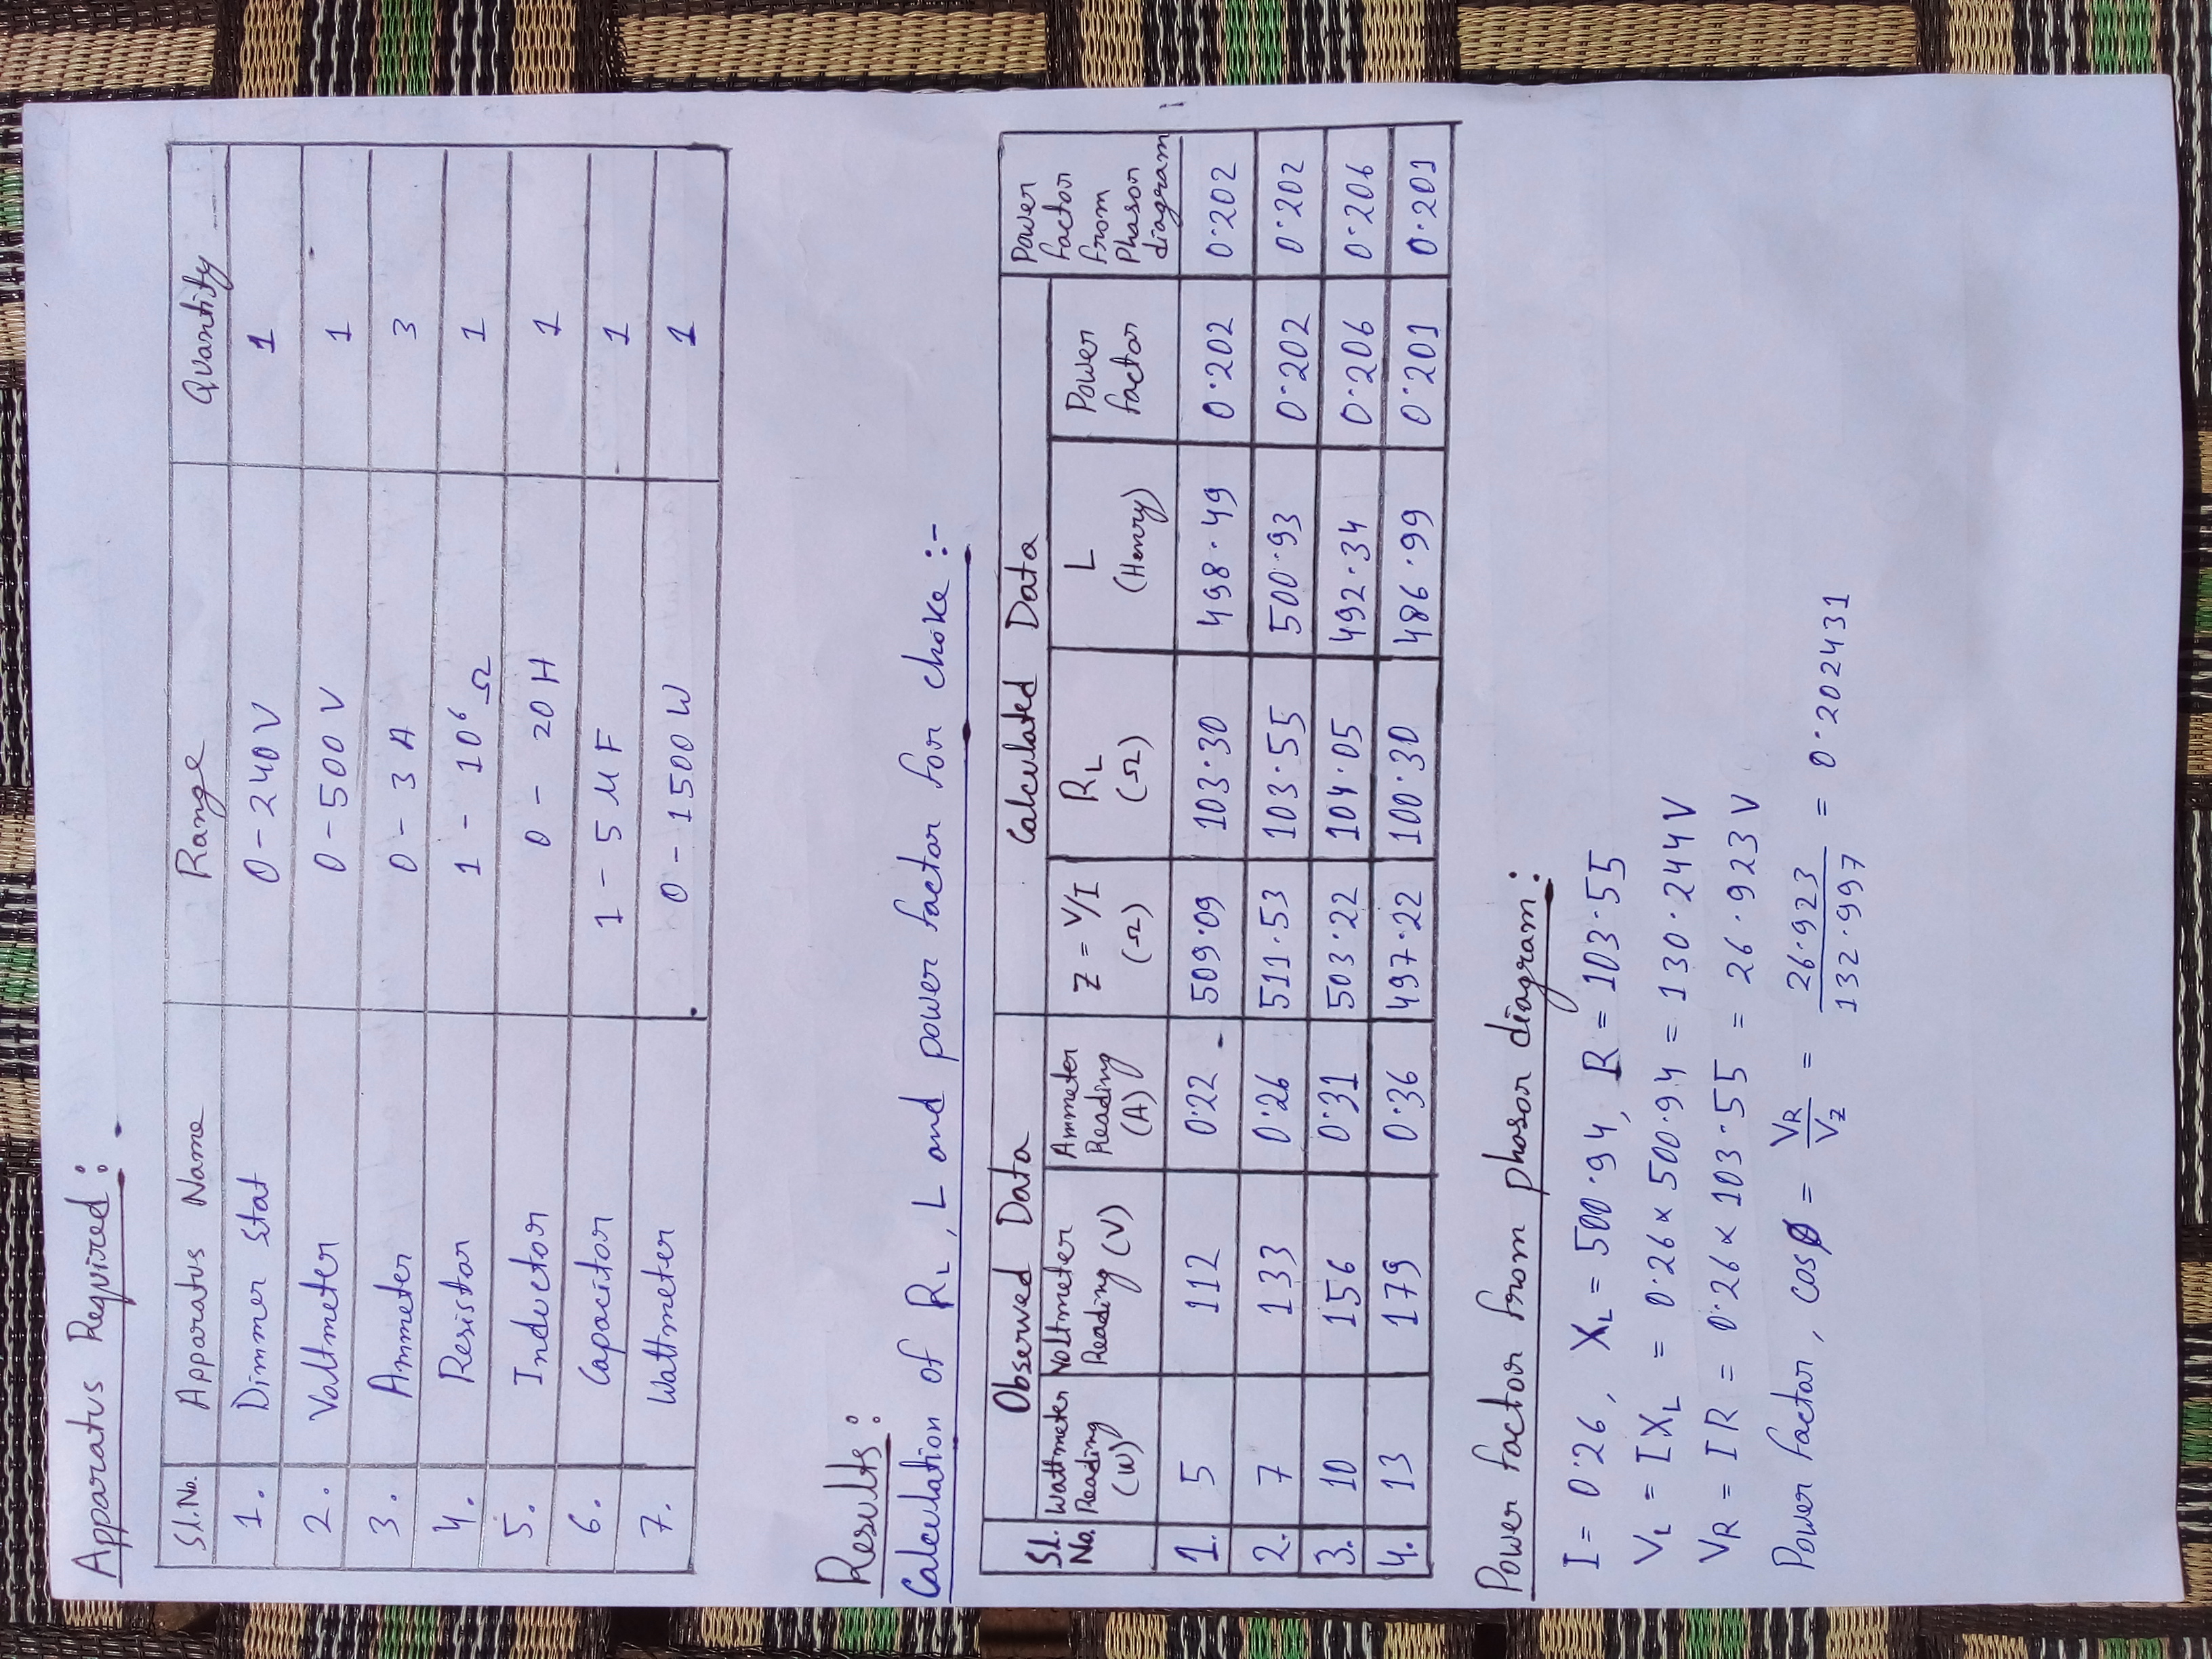 Apparatus Required :
Sl. No. Apparatus Name Range Quantity
1. Dimmer Stat 0 - 240 V 1
2. Voltmeter 0 - 500 V 1
3. Ammeter 0 - 3 A 3
4. Resistor 1 - 10⁶ Ω 1
5. Inductor 0 - 20 H 1
6. Capacitor 1 - 5 µF 1
7. Wattmeter 0 - 1500 W 1
Results :
Calculation of RL, L and power factor for choke :-
Sl. No. Observed Data Calculated Data Power factor from Phasor diagram
Wattmeter Reading (W) Voltmeter Reading (V) Ammeter Reading (A) Z = V/I (Ω) RL (Ω) L (Henry) Power factor
1. 5 112 0.22 509.09 103.30 498.49 0.202 0.202
2. 7 133 0.26 511.53 103.55 500.93 0.202 0.202
3. 10 156 0.31 503.22 104.05 492.34 0.206 0.206
4. 13 179 0.36 497.22 100.30 486.99 0.201 0.201
Power factor from phasor diagram :
I = 0.26, XL = 500.94, R = 103.55
VL = IXL = 0.26 × 500.94 = 130.244 V
VR = IR = 0.26 × 103.55 = 26.923 V
Power factor, cosϕ = VR/VZ = 26.923/132.997 = 0.202431